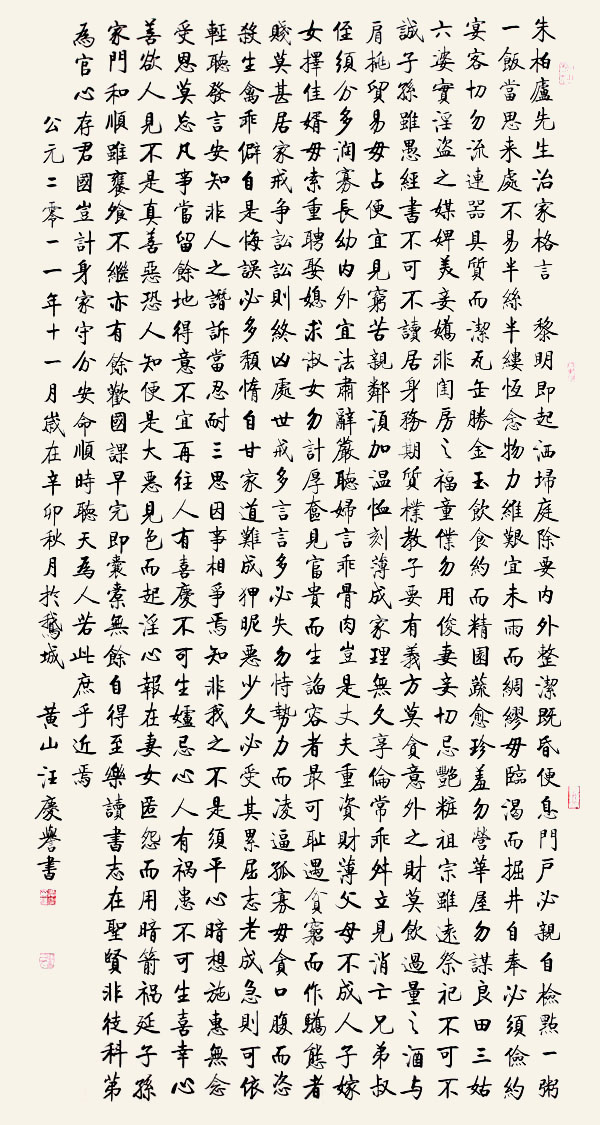 朱柏廬先生治家格言 黎明即起洒埽庭除要内外整潔既昏便息門戶必親自檢點一粥
一飯當思来處不易半絲半縷恆念物力維艱宜未雨而綢繆毋臨渴而掘井自奉必須儉約
宴客切勿流連器具質而潔瓦缶勝金玉飲食約而精園蔬愈珍羞勿營華屋勿謀良田三姑
六婆實淫盜之媒婢美妾嬌非闺房之福童僕勿用俊妻妾切忌艷粧祖宗雖遠祭祀不可不
誠子孫雖愚經書不可不讀居身務期質樸教子要有義方莫貪意外之財莫飲過量之酒与
肩挑貿易毋占便宜見窮苦親鄰須加温恤刻薄成家理無久享倫常乖舛立見消亡兄弟叔
侄須分多润寡長幼内外宜法肅辭嚴聽婦言乖骨肉豈是丈夫重資財薄父母不成人子嫁
女擇佳婿毋索重聘娶媳求淑女勿計厚奩見富貴而生諂容者最可耻遇貧窮而作驕態者
賤莫甚居家戒争訟訟則終凶處世戒多言言多必失勿恃勢力而凌逼孤寡毋貪口腹而恣
殺生禽乖僻自是悔誤必多頹惰自甘家道難成狎昵惡少久必受其累屈志老成急則可依
輕聽發言安知非人之譖訴當忍耐三思因事相爭焉知非我之不是須平心暗想施惠無念
受恩莫忘凡事當留餘地得意不宜再往人有喜慶不可生嫉忌心人有禍患不可生喜幸心
善欲人見不是真善惡恐人知便是大惡見色而起淫心報在妻女匿怨而用暗箭祸延子孫
家門和順雖饔飧不繼亦有餘歡國課早完即囊橐無餘自得至樂讀書志在聖賢非徒科第
為官心存君國豈計身家守分安命順時聽天為人若此庶乎近焉
公元二零一一年十一月歲在辛卯秋月於鵝城 黃山汪慶譽書